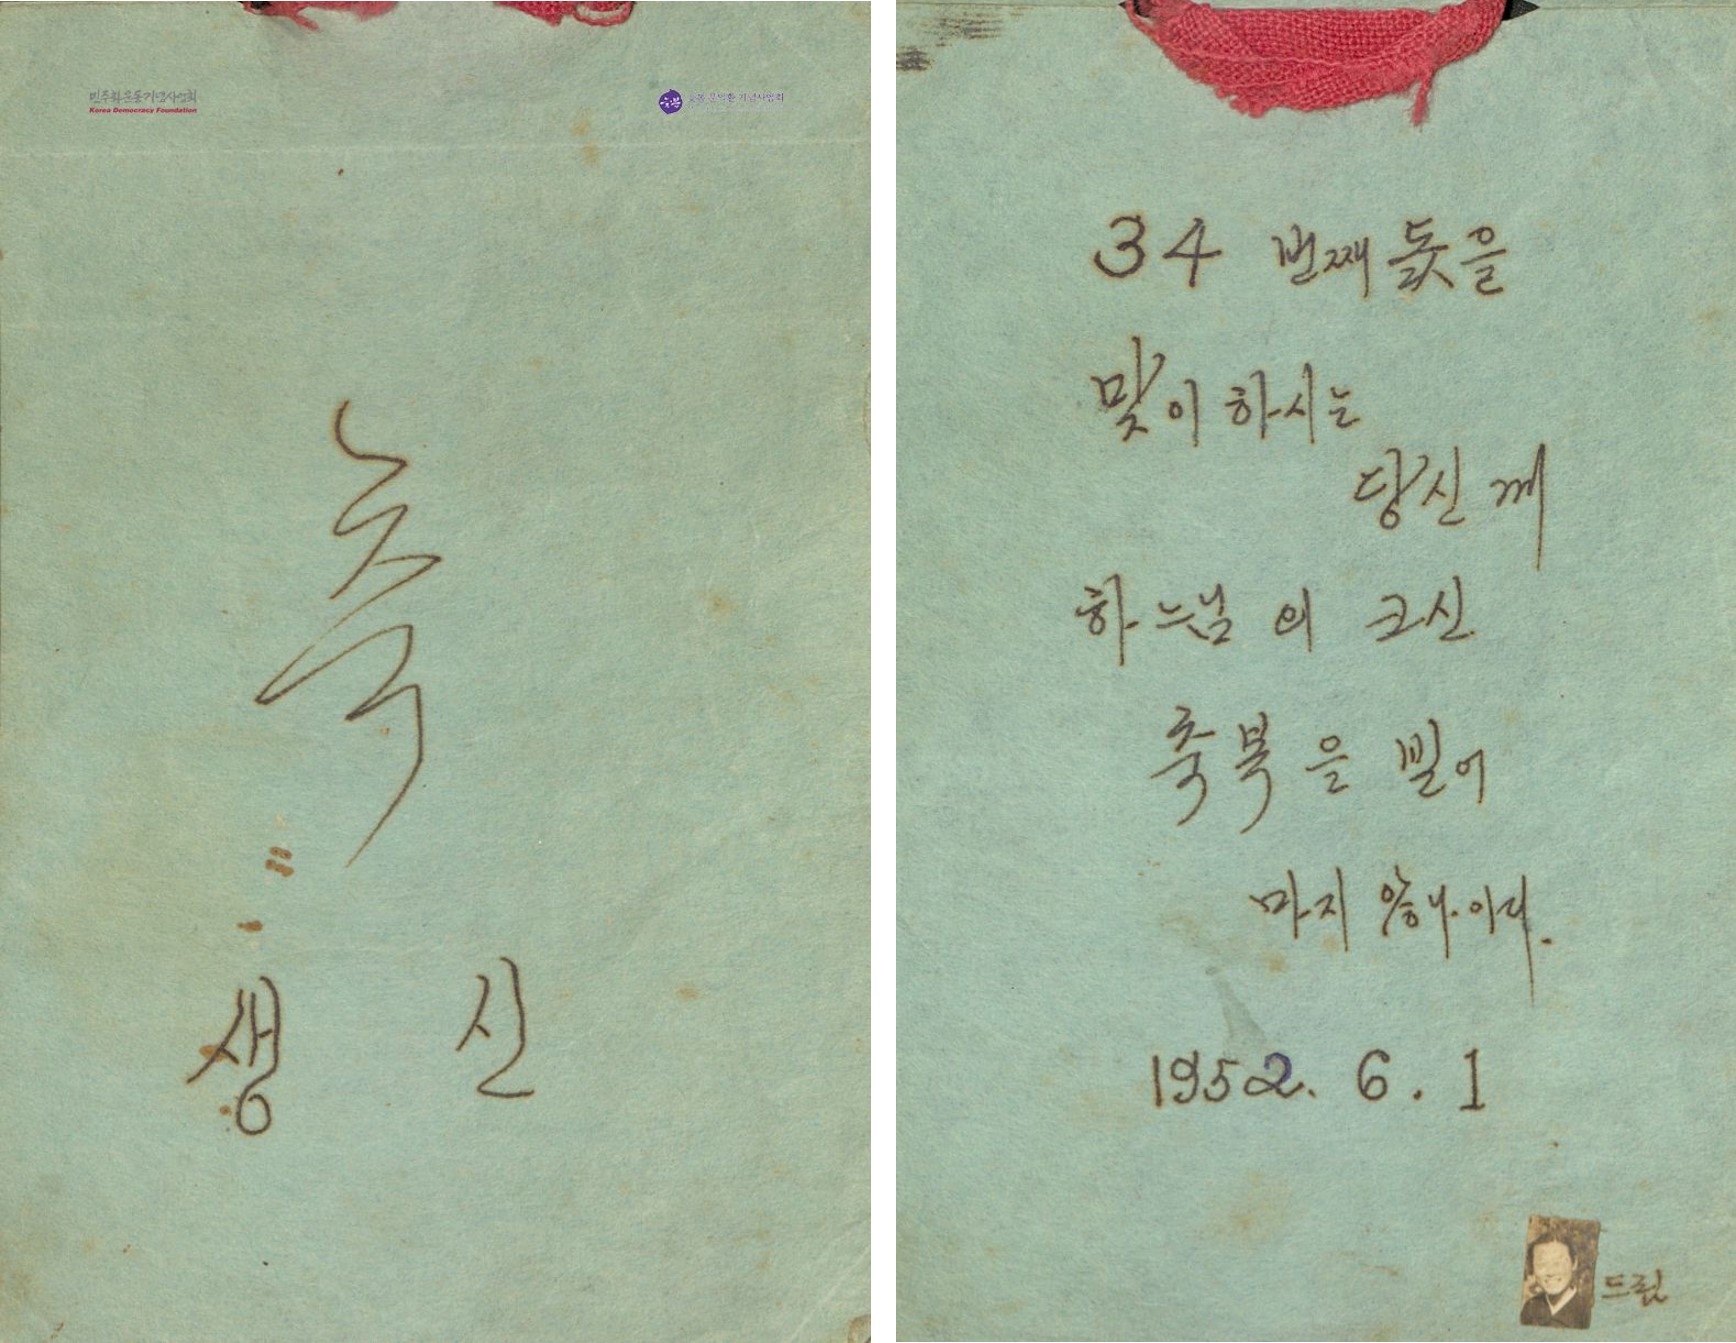 민주화운동기념사업회
Korea Democracy Foundation
늦봄 문익환 기념사업회
축
생 신
34 번째 돐을
맞이 하시는
당신 께
하느님 의 크신
축복 을 빌어
마지 않나이다.
1952. 6. 1
드림